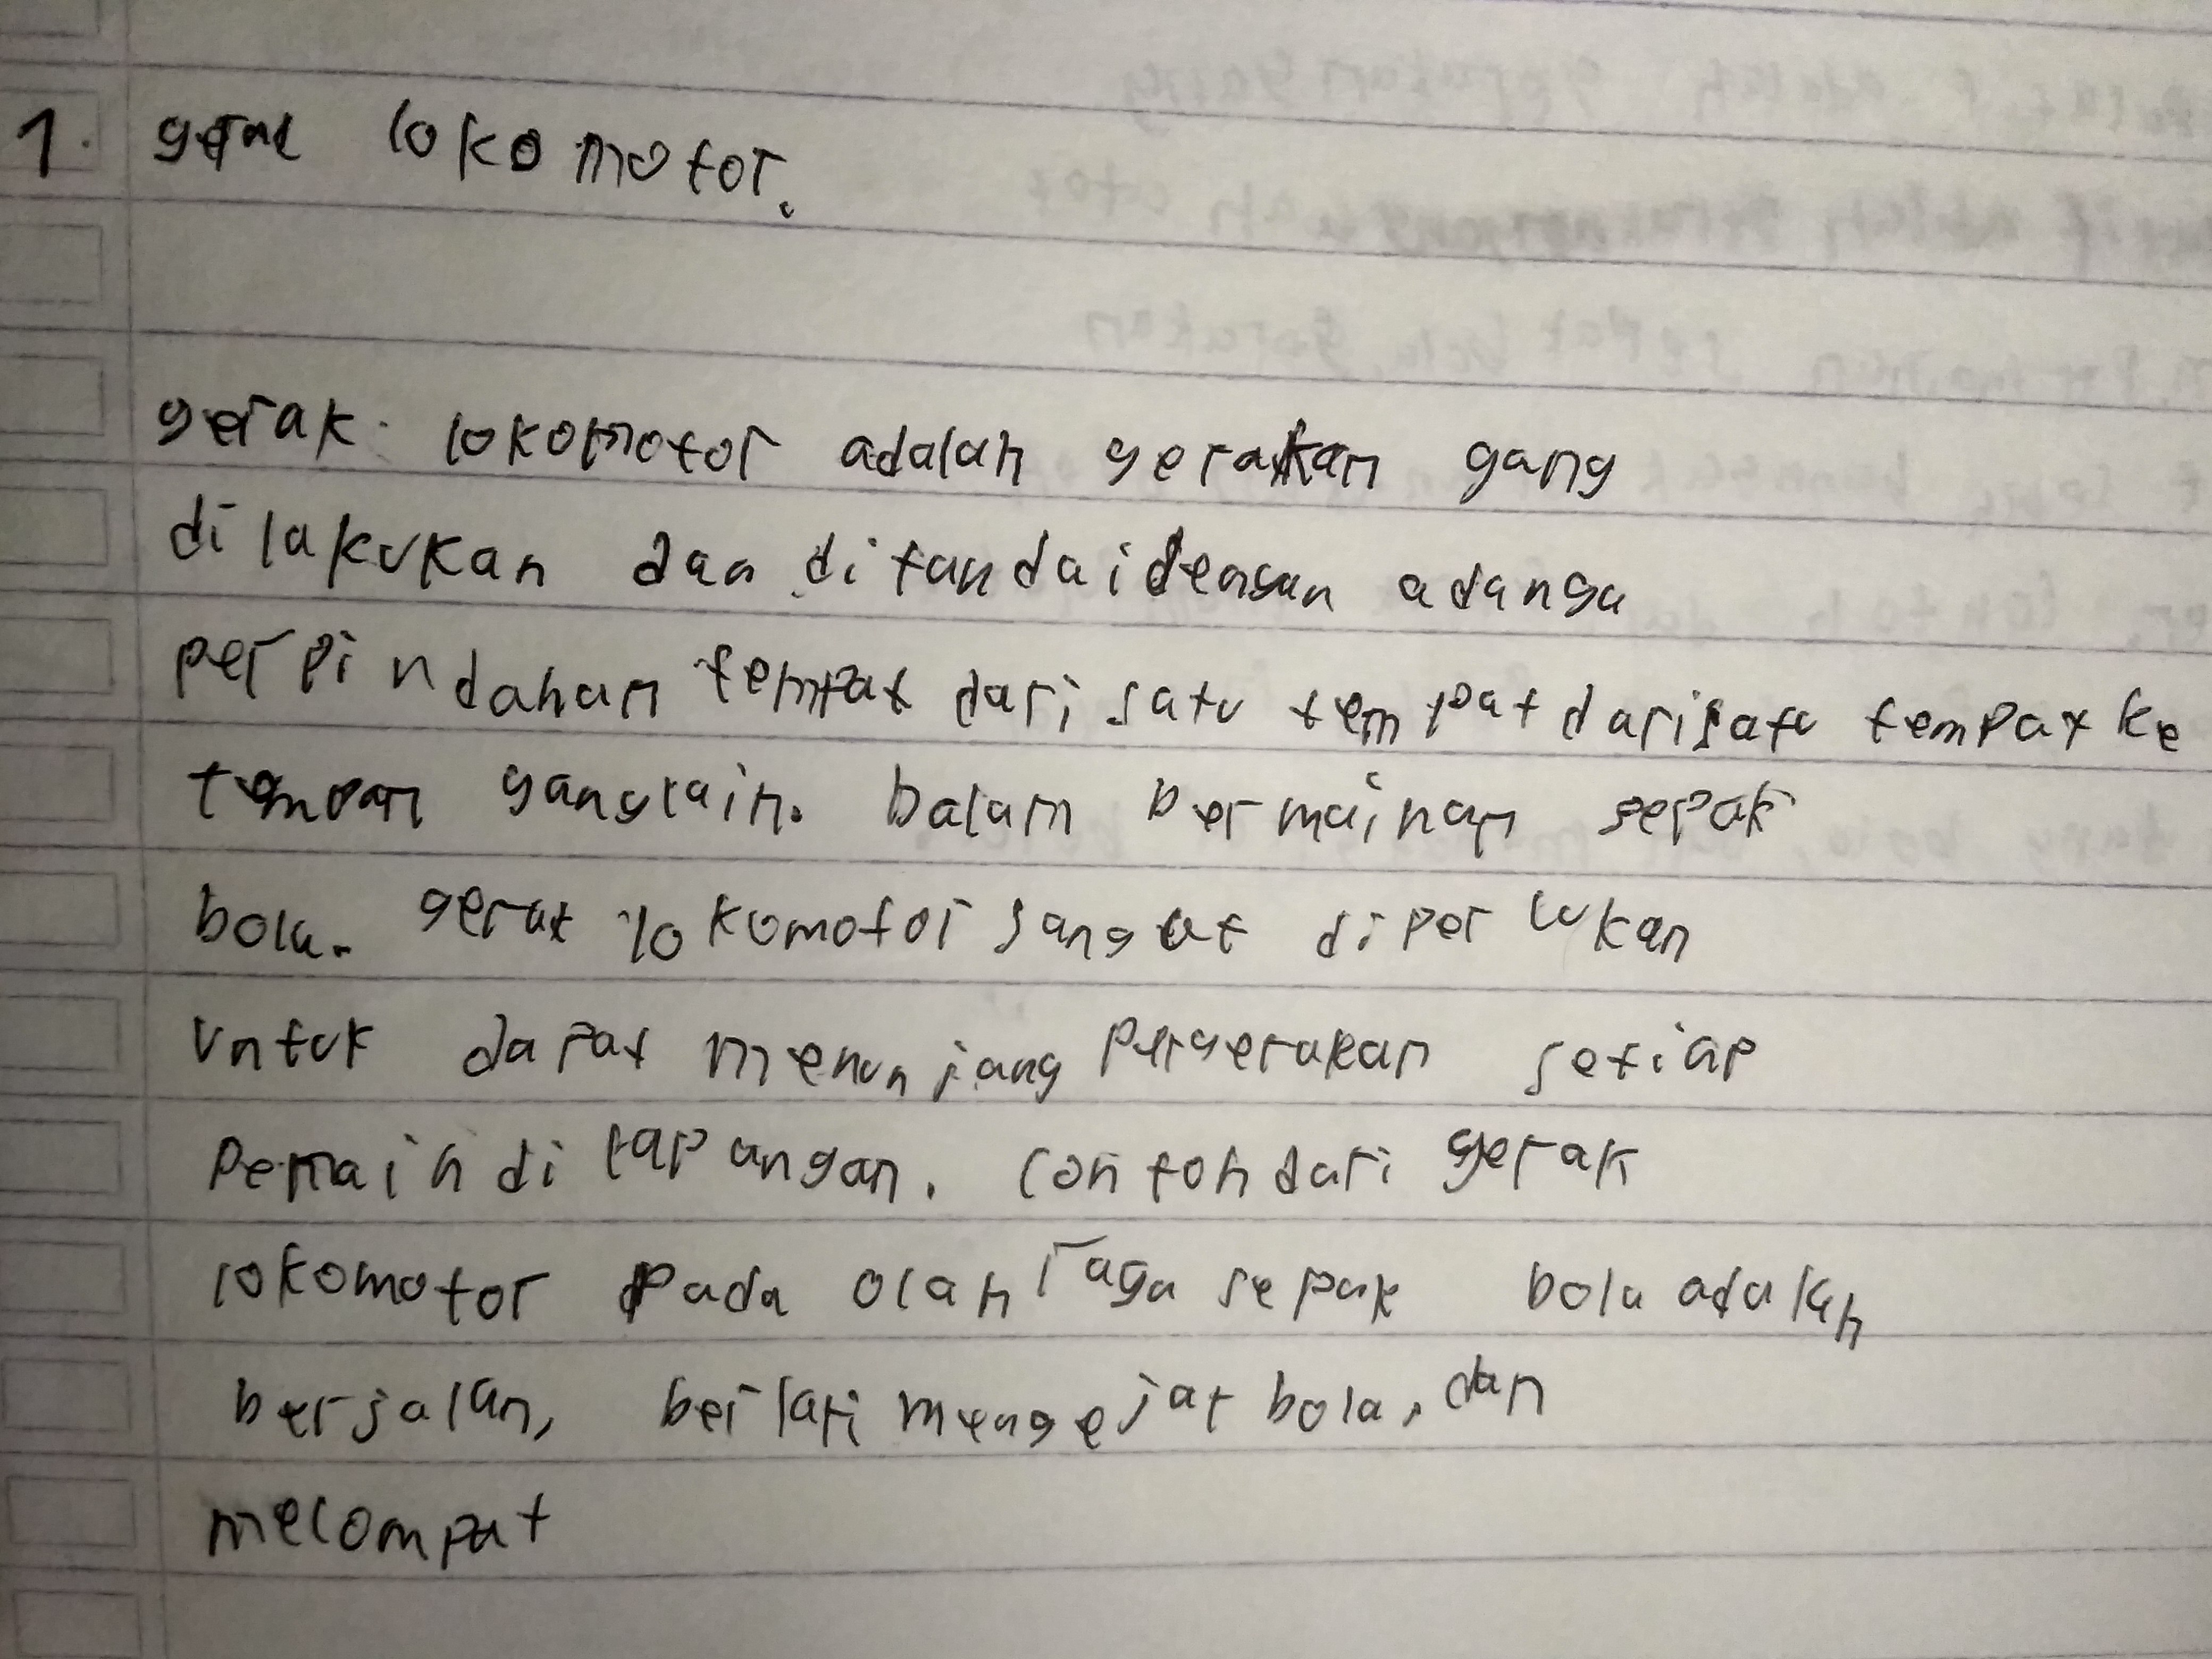 1. gerak lokomotor.
gerak lokomotor adalah gerakan yang
dilakukan dan ditandai dengan adanya
perpindahan tempat dari satu tempat dari satu tempat ke
yang lain. Dalam bermainan sepak
bola. gerak lokomotor sangat diperlukan
untuk dapat menunjang pergerakan setiap
Pemain di lapangan. Contoh dari gerak
lokomotor pada olahraga sepak bola adalah
berjalan, berlari mengejar bola, dan
melompat